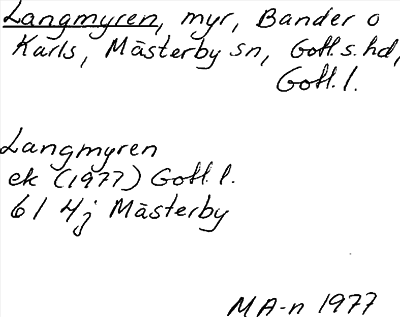 Langmyren, myr, Bander o
Karls, Mästerby sn, Gotl. s. hd,
Gotl. l.
Langmyren
ek (1977) Gotl. l.
6 I 4j Mästerby
MA-n 1977